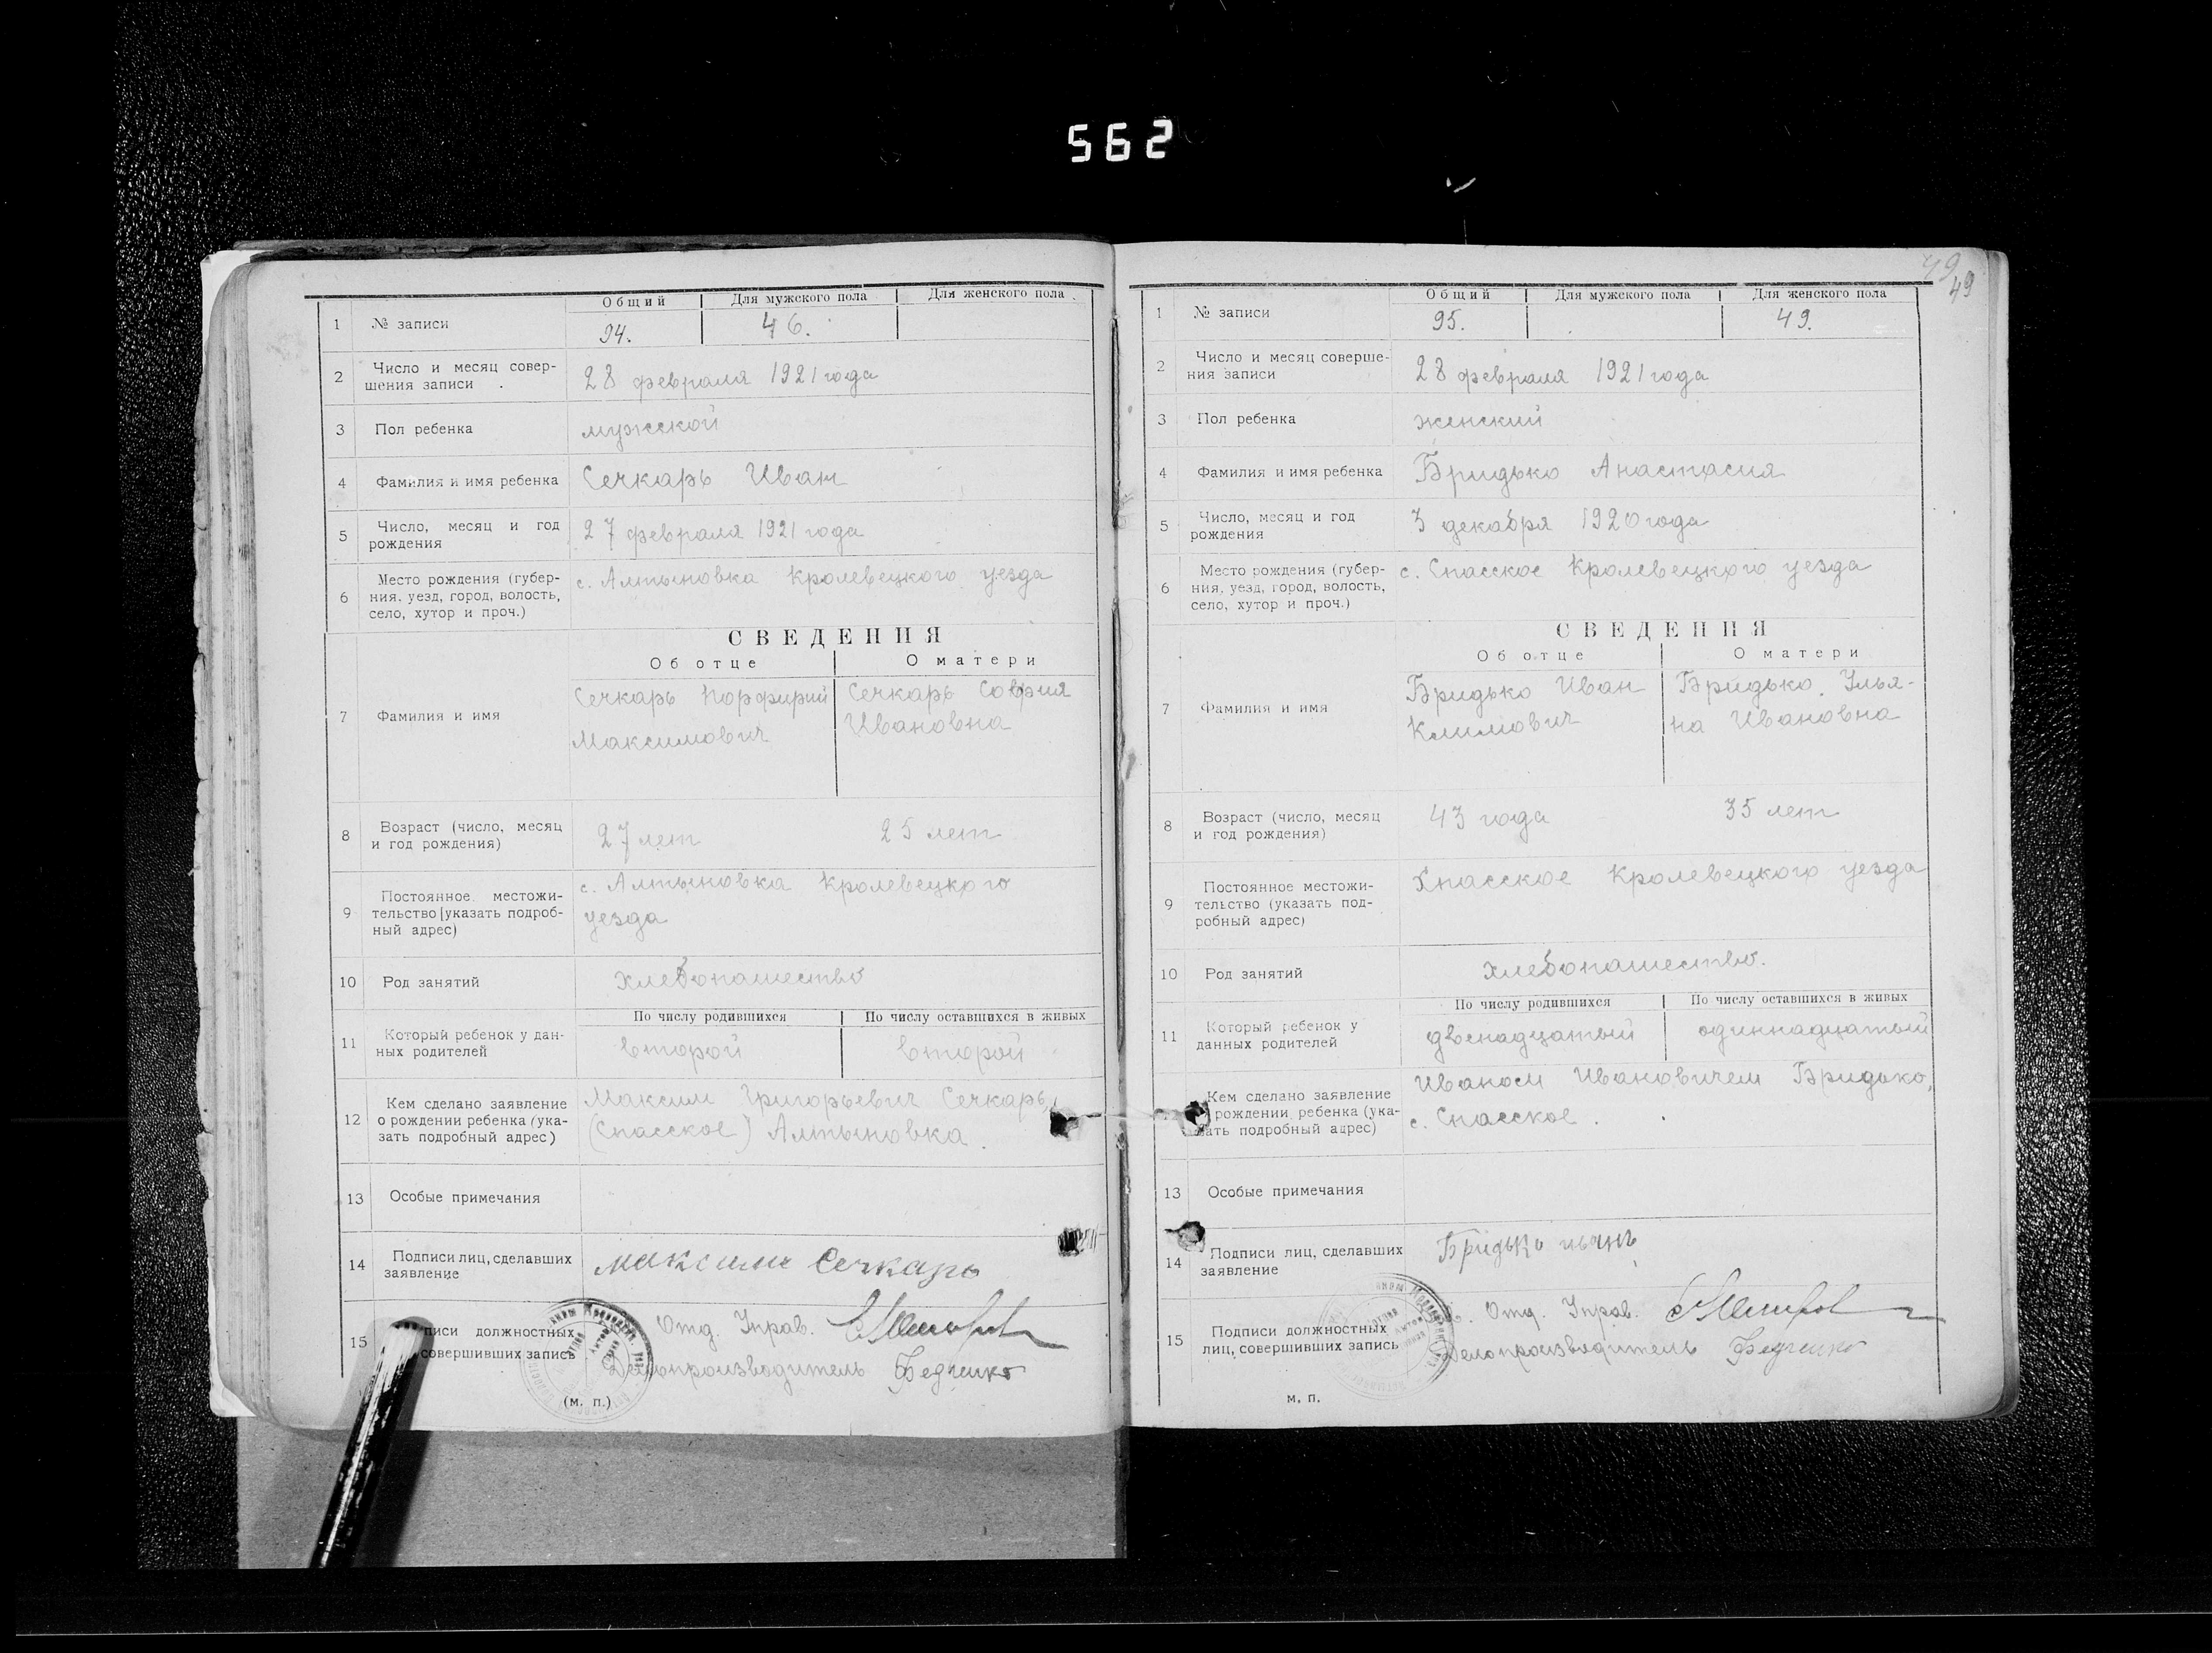 562
Общий Для мужского пола Для женского пола
1 № записи 94. 46.
2 Число и месяц совер-
шения записи 28 февраля 1921 года
3 Пол ребенка мужской
4 Фамилия и имя ребенка Сечкарь Иван
5 Число, месяц и год
рождения 27 февраля 1921 года
6 Место рождения (губер-
ния, уезд, город, волость,
село, хутор и проч.) с. Алтыновка Кролевецкого уезда
СВЕДЕНИЯ
Об отце О матери
7 Фамилия и имя
Сечкарь Порфирий
Максимович
Сечкарь София
Ивановна
8 Возраст (число, месяц
и год рождения) 27 лет 25 лет
9 Постоянное местожи-
тельство [указать подроб-
ный адрес)
с. Алтыновка Кролевецкого
уезда
10 Род занятий хлебопашество
По числу родившихся По числу оставшихся в живых
11 Который ребенок у дан-
ных родителей второй второй
12 Кем сделано заявление
о рождении ребенка (ука-
зать подробный адрес)
Максим Григорьевич Сечкарь,
(Спасское) Алтыновка.
13 Особые примечания
14 Подписи лиц, сделавших
заявление Максим Сечкарь
15 писи должностных
совершивших запись
Отд. Управ.
Делопроизводитель Федченко
(м. п.)
49
49
Общий Для мужского пола Для женского пола
1 № записи 95. 49.
2 Число и месяц соверше-
ния записи 28 февраля 1921 года
3 Пол ребенка женский
4 Фамилия и имя ребенка Бридько Анастасия
5 Число, месяц и год
рождения 3 декабря 1920 года
6 Место рождения (губер-
ния, уезд, город, волость,
село, хутор и проч.) с. Спасское Кролевецкого уезда
СВЕДЕНИЯ
Об отце О матери
7 Фамилия и имя
Бридько Иван
Климович
Бридько Улья-
на Ивановна
8 Возраст (число, месяц
и год рождения) 43 года 35 лет
9 Постоянное местожи-
тельство (указать под-
робный адрес)
Спасское Кролевецкого уезда
10 Род занятий хлебопашество.
По числу родившихся По числу оставшихся в живых
11 Который ребенок у
данных родителей двенадцатый одиннадцатый
Кем сделано заявление
рождении ребенка (ука-
зать подробный адрес)
Иваном Ивановичем Бридько,
с. Спасское.
13 Особые примечания
14 Подписи лиц, сделавших
заявление Бридько иванъ
15 Подписи должностных
лиц, совершивших запись
Отд. Управ.
Делопроизводитель Федченко
м. п.